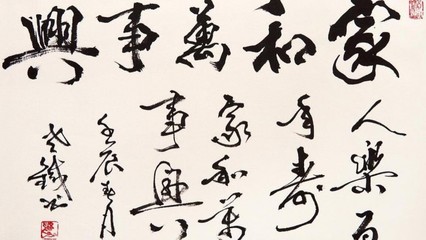 家和萬事興
人樂百
年壽
家和萬
事興
壬辰春月
老鐵